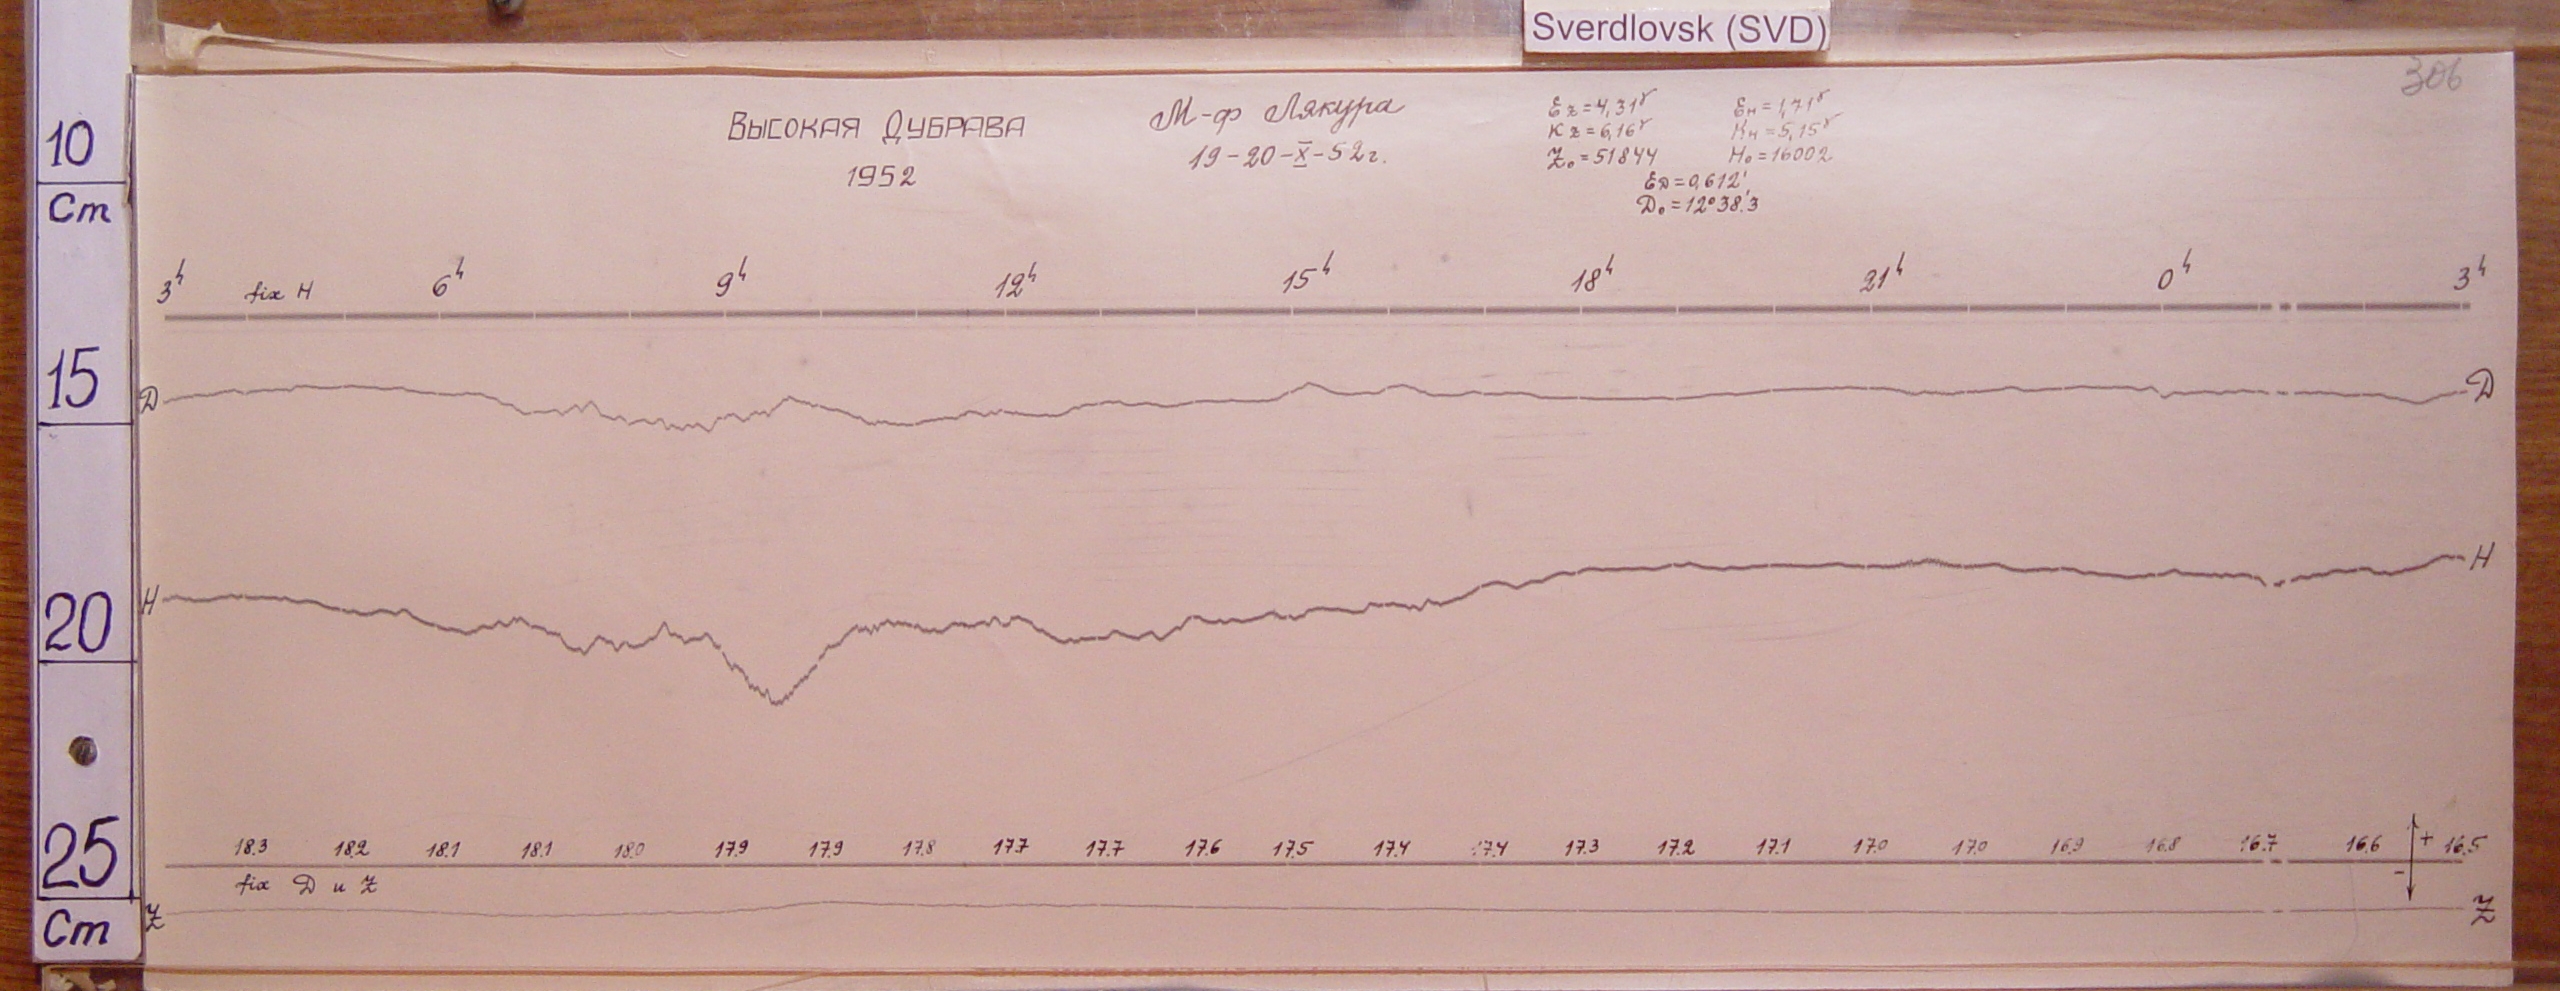 Sverdlovsk (SVD)
306
10
Cm
15
20
25
Cm
ВЫСОКАЯ ДУБРАВА
1952
М-ф Лякура
19-20-X-52г.
Ez=4,31γ
Kz=6,16γ
Z₀=51844
Eн=1,71γ
Kн=5,15γ
H₀=16002
ED=0,612'
D₀=12°38.'3
3h fix H 6h 9h 12h 15h 18h 21h 0h 3h
D D
H H
18.3 18.2 18.1 18.1 18.0 17.9 17.9 17.8 17.7 17.7 17.6 17.5 17.4 17.4 17.3 17.2 17.1 17.0 17.0 16.9 16.8 16.7 16.6 + 16.5
-
fix D и Z
Z Z